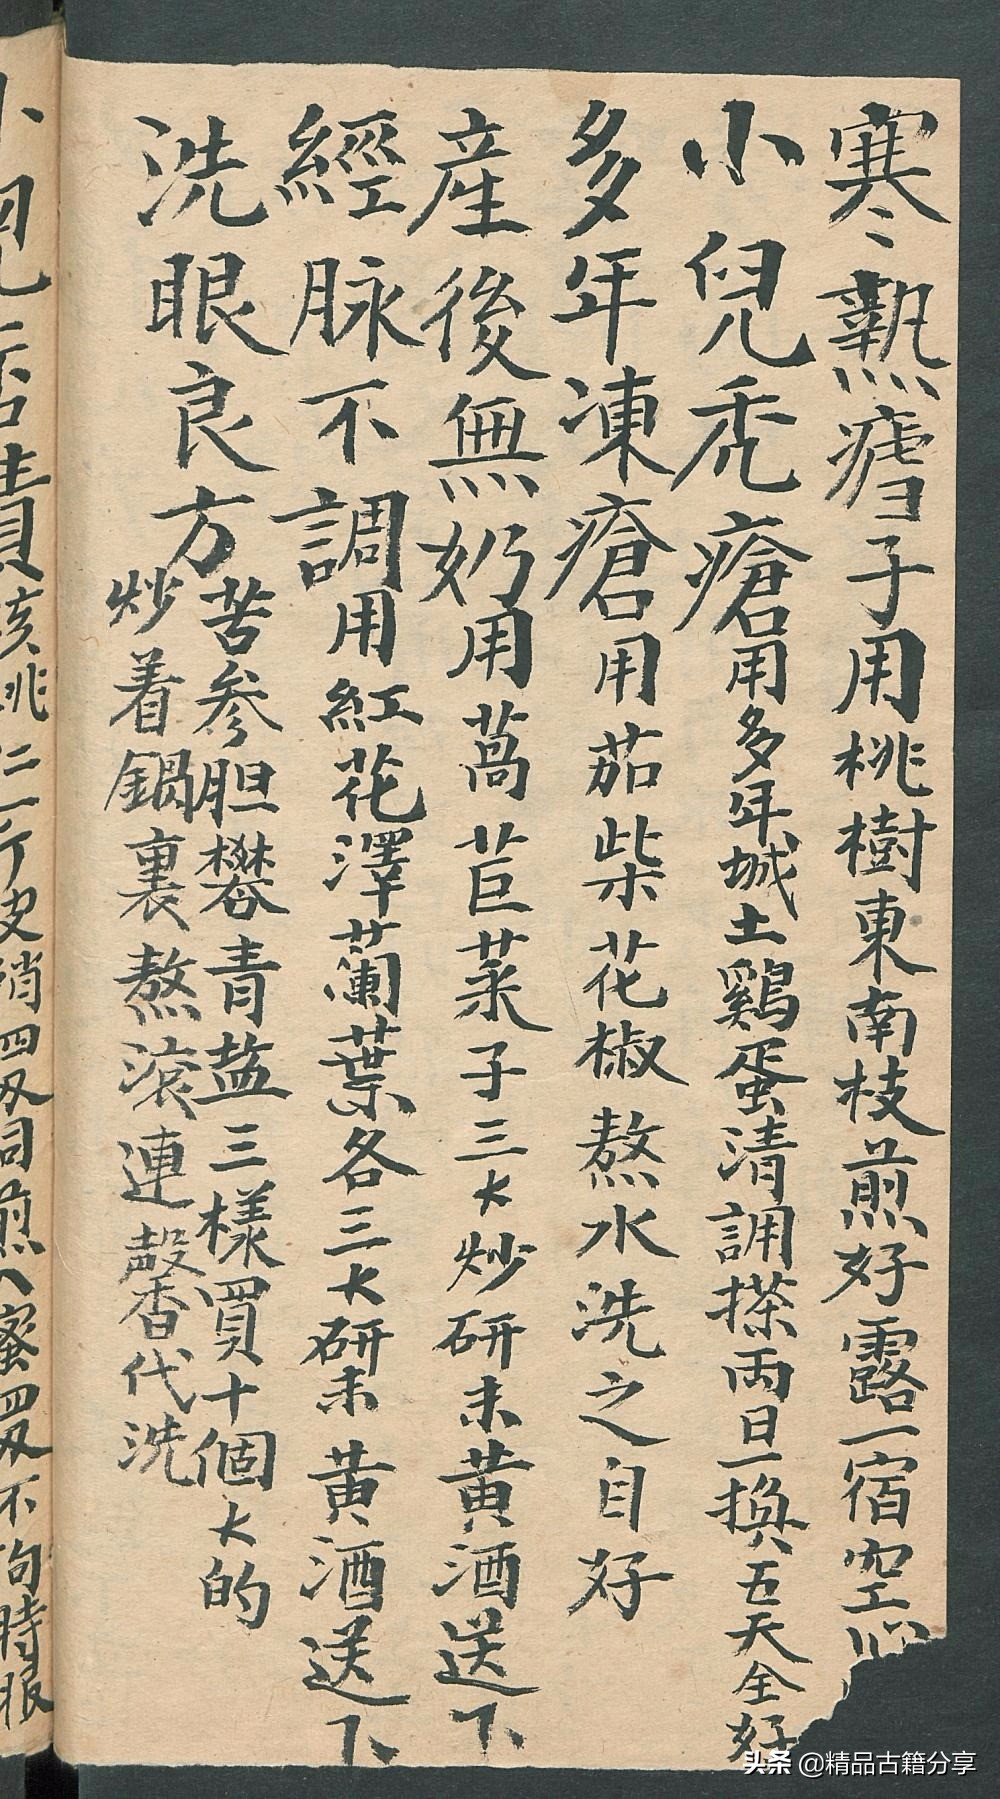 寒熱瘧子用桃樹東南枝煎好露一宿空心
小兒禿瘡用多年城土鷄蛋清調搽兩日一換五天全好
多年凍瘡用茄柴花椒熬水洗之自好
産後無奶用萵苣菜子三大炒研末黃酒送下
經脉不調用紅花澤蘭葉各三大研末黃酒送下
洗眼良方苦参胆礬青盐三樣買十個大的
炒着鍋裏熬滚連馨代洗
桃仁一斤皮硝四
同煎入蜜
不拘時服
头条 @精品古籍分享